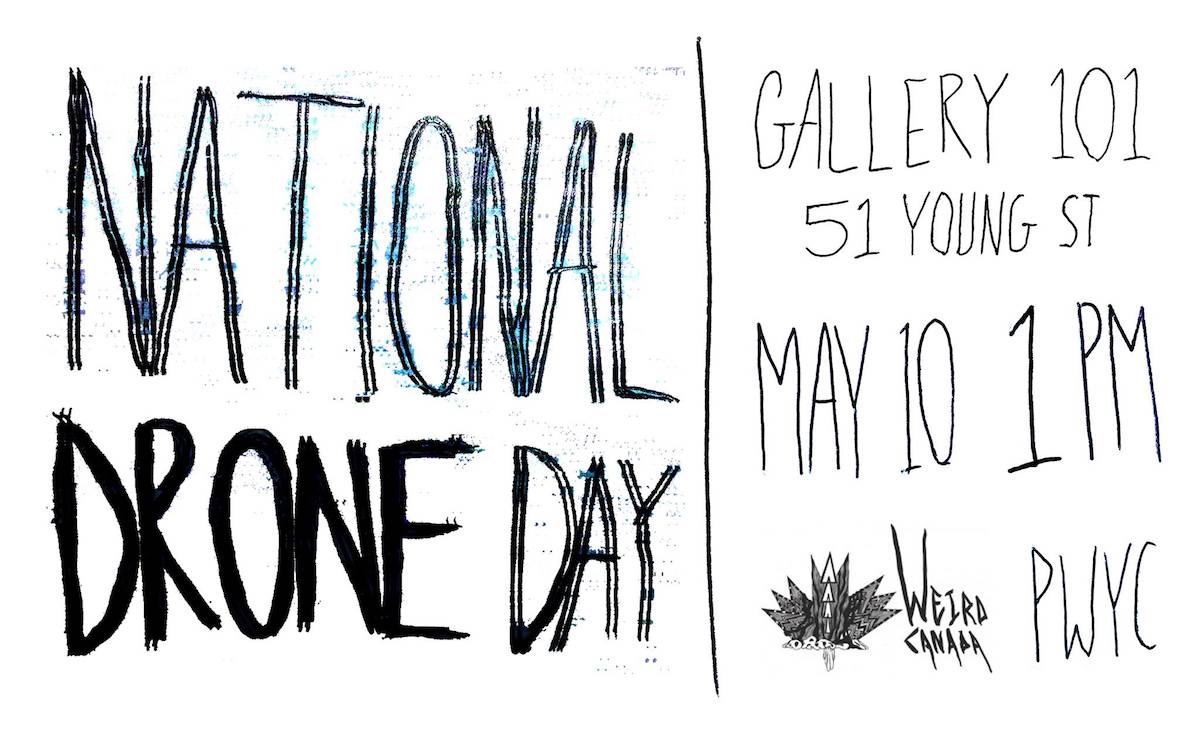 NATIONAL
DRONE DAY
GALLERY 101
51 YOUNG ST
MAY 10 1 PM
WEIRD
CANADA
PWYC